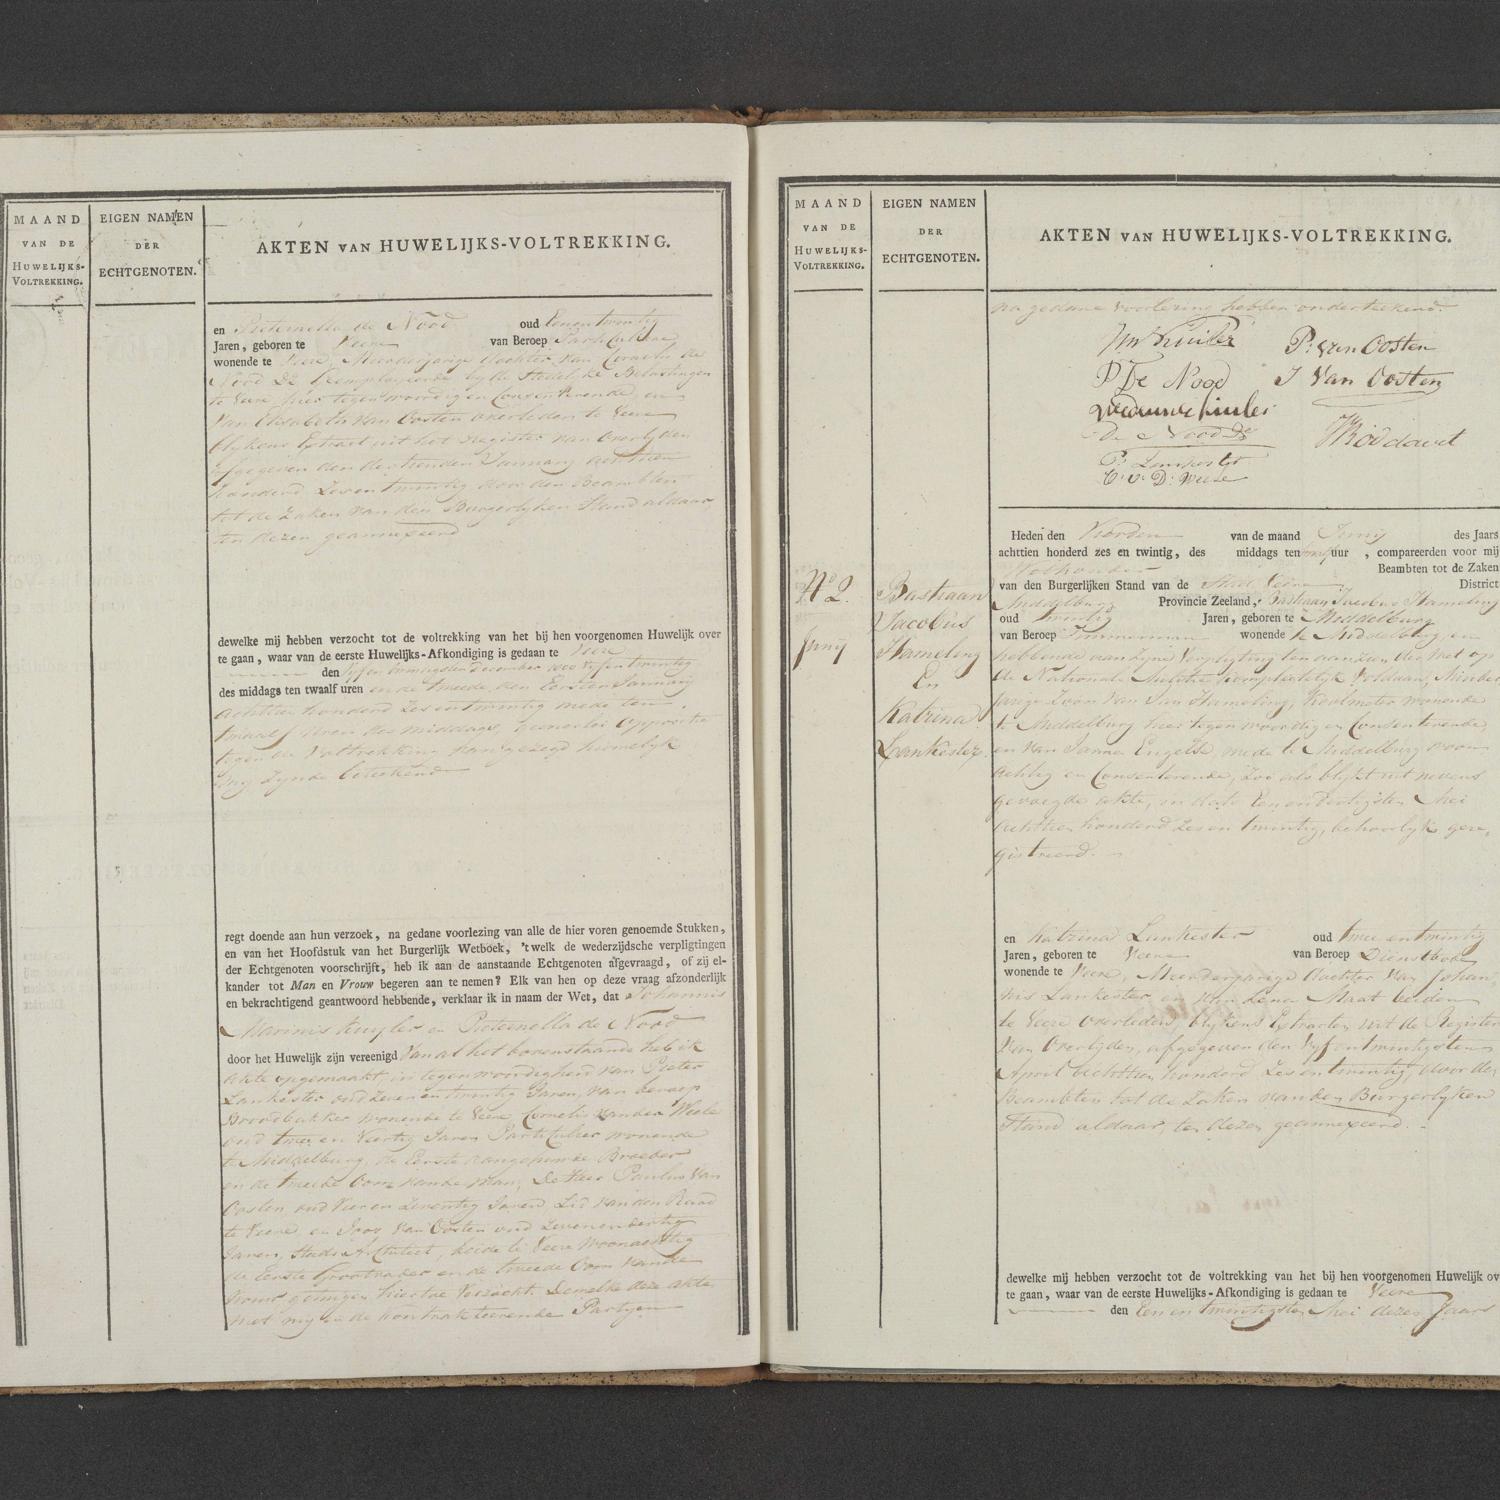 MAAND
VAN DE
HUWELIJKS-
VOLTREKKING.
EIGEN NAMEN
DER
ECHTGENOTEN.
AKTEN VAN HUWELIJKS-VOLTREKKING.
en Pieternella de Nood oud Eenentwintig
Jaren, geboren te Veere van Beroep Particuliere
wonende te Veere, Meerderjarige dochter van Cornelis de
Nood geemployeerde by de Stedelyke Belastingen
te Veere hier tegenwoordig en Consenterende, en
van Elisabeth van Oosten overleden te Veere
blykens Extract uit het register van Overlyden
afgegeven den dertienden January achttien
honderd Zesentwintig door den Beambten
tot de Zaken van den Burgerlyken Stand aldaar,
ten dezen geannexeerd
dewelke mij hebben verzocht tot de voltrekking van het bij hen voorgenomen Huwelijk over
te gaan, waar van de eerste Huwelijks-Afkondiging is gedaan te Veere
den vyfentwintigsten December 1800 vyfentwintig
des middags ten twaalf uren en de tweede den Eersten January
achttien honderd Zesentwintig mede ten
twaalf uren des middags, geenerlei oppositie
tegen de Voltrekking van gezegd huwelyk
my zynde beteekend
regt doende aan hun verzoek, na gedane voorlezing van alle de hier voren genoemde Stukken,
en van het Hoofdstuk van het Burgerlijk Wetboek, 'twelk de wederzijdsche verpligtingen
der Echtgenoten voorschrijft, heb ik aan de aanstaande Echtgenoten afgevraagd, of zij el-
kander tot Man en Vrouw begeren aan te nemen? Elk van hen op deze vraag afzonderlijk
en bekrachtigend geantwoord hebbende, verklaar ik in naam der Wet, dat Johannis
Marinis Kuyler en Pieternella de Nood
door het Huwelijk zijn vereenigd Van al het bovenstaande heb ik
akte opgemaakt, in tegenwoordigheid van Pieter
Lankester oud Zeven entwintig Jaren, van beroep
Broodbakker wonende te Veere, Cornelis van der Weele
oud twee en Veertig Jaren Particulier wonende
te Middelburg, de Eerste aangehuwde Broeder
en de tweede Oom van de Man, De Heer Paulus Van
Oosten oud Vier en Zeventig Jaren, Lid van den Raad
te Veere en Joos Van Oosten oud Zevenendertig
Jaren, Stads Architect, beide te Veere Woonachtig
de Eerste Grootvader en de tweede Oom van de
Vrouw getuigen hiertoe Verzocht. Dewelke deze akte
met my en de kontrakteerende Partyen
MAAND
VAN DE
HUWELIJKS-
VOLTREKKING.
EIGEN NAMEN
DER
ECHTGENOTEN.
AKTEN VAN HUWELIJKS-VOLTREKKING.
na gedane voorlezing hebben onderteekend.
P: van Oosten
P De Nood
J Van Oosten
De Nood
P: Lankester
C: v: D: Weele
No 2.
Juny
Bastiaan
Jacobus
Hameling
En
Katrina
Lankester
Heden den Vierden van de maand Juny des Jaars
achttien honderd zes en twintig, des middags ten uur, compareerden voor mij
Wethouder Beambten tot de Zaken
van den Burgerlijken Stand van de Stad Veere District
Middelburg Provincie Zeeland, Bastiaan Jacobus Hameling
oud twintig Jaren, geboren te Middelburg
van Beroep Timmerman wonende te Middelburg, en
hebbende aan Zyne Verpligting ten aanzien der Wet op
de Nationale Militie kompleetelyk Voldaan, Minder
jarige Zoon van Jan Hameling, Koolmeter wonende
te Middelburg hier tegenwoordig en Consenterende,
en van Janna Engelse, mede te Middelburg woon
achtig en Consenterende, zoo als blykt uit nevens
gevoegde akte, in dato Een en Dertigsten Mei
achttien honderd Zes en twintig, behoorlyk gere,
gistreerd.
en Katrina Lankester oud twee entwintig
Jaren, geboren te Veere van Beroep Dienstbode
wonende te Veere, Meerderjarige dochter van Johan,
nis Lankester en van Lena Maat beiden
te Veere overleden, blykens Extracten uit de Register
van Overlyden, afgegeven den Vyfentwintigsten
April achttien honderd Zes en twintig, door den
Beambten tot de Zaken van den Burgerlyken
Stand aldaar, ten dezen geannexeerd.
dewelke mij hebben verzocht tot de voltrekking van het bij hen voorgenomen Huwelijk ov
te gaan, waar van de eerste Huwelijks-Afkondiging is gedaan te Veere
den Een en twintigsten Mei dezes Jaars